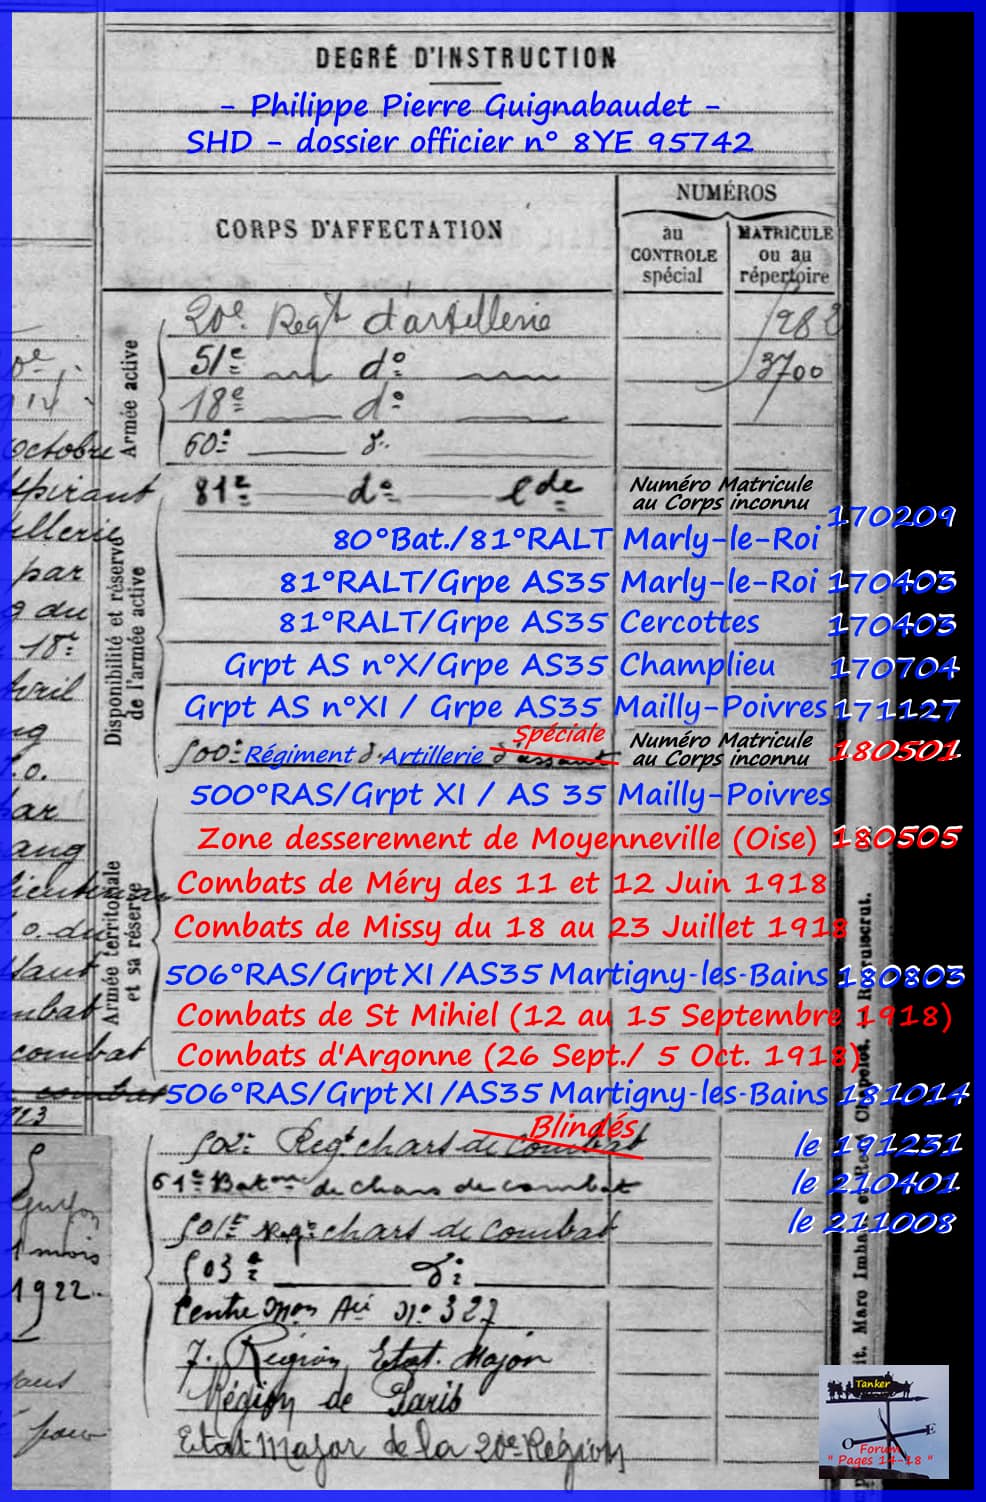 DEGRÉ D'INSTRUCTION
- Philippe Pierre Guignabaudet -
SHD - dossier officier n° 8YE 95742
CORPS D'AFFECTATION
NUMÉROS
au CONTROLE spécial
MATRICULE ou au répertoire
Armée active
20e Regt d'artillerie
982
51e d°
3700
18e d°
60e d°
octobre
81e d° Lde
Numéro Matricule
au Corps inconnu
Aspirant
Disponibilité et réserve
de l'armée active
170209
80°Bat./81°RALT Marly-le-Roi
par
81°RALT/Grpe AS35 Marly-le-Roi 170403
du
81°RALT/Grpe AS35 Cercottes 170403
18e
Grpt AS n°X/Grpe AS35 Champlieu 170704
Avril
Grpt AS n°XI / Grpe AS35 Mailly-Poivres 171127
Spéciale
500e Régiment d'Artillerie d'assaut
Numéro Matricule
au Corps inconnu
180501
500°RAS/Grpt XI / AS 35 Mailly-Poivres
par
Zone desserement de Moyenneville (Oise) 180505
rang
Armée territoriale
et sa réserve
Combats de Méry des 11 et 12 Juin 1918
Combats de Missy du 18 au 23 Juillet 1918
506°RAS/Grpt XI /AS35 Martigny-les-Bains 180803
Combats de St Mihiel (12 au 15 Septembre 1918)
combat
Combats d'Argonne (26 Sept./ 5 Oct. 1918)
combat
506°RAS/Grpt XI /AS35 Martigny-les-Bains 181014
Blindés
502e Regt chars de combat
le 191231
61e Batons de chars de combat
le 210401
501e Regt chars de combat
le 211008
mois
503e d°
1922
Centre Mon Aie N° 327
7e Région Etat-Major
Région de Paris
pour
Etat Major de la 20e Région
Tanker
O
E
Forum
" Pages 14-18 "